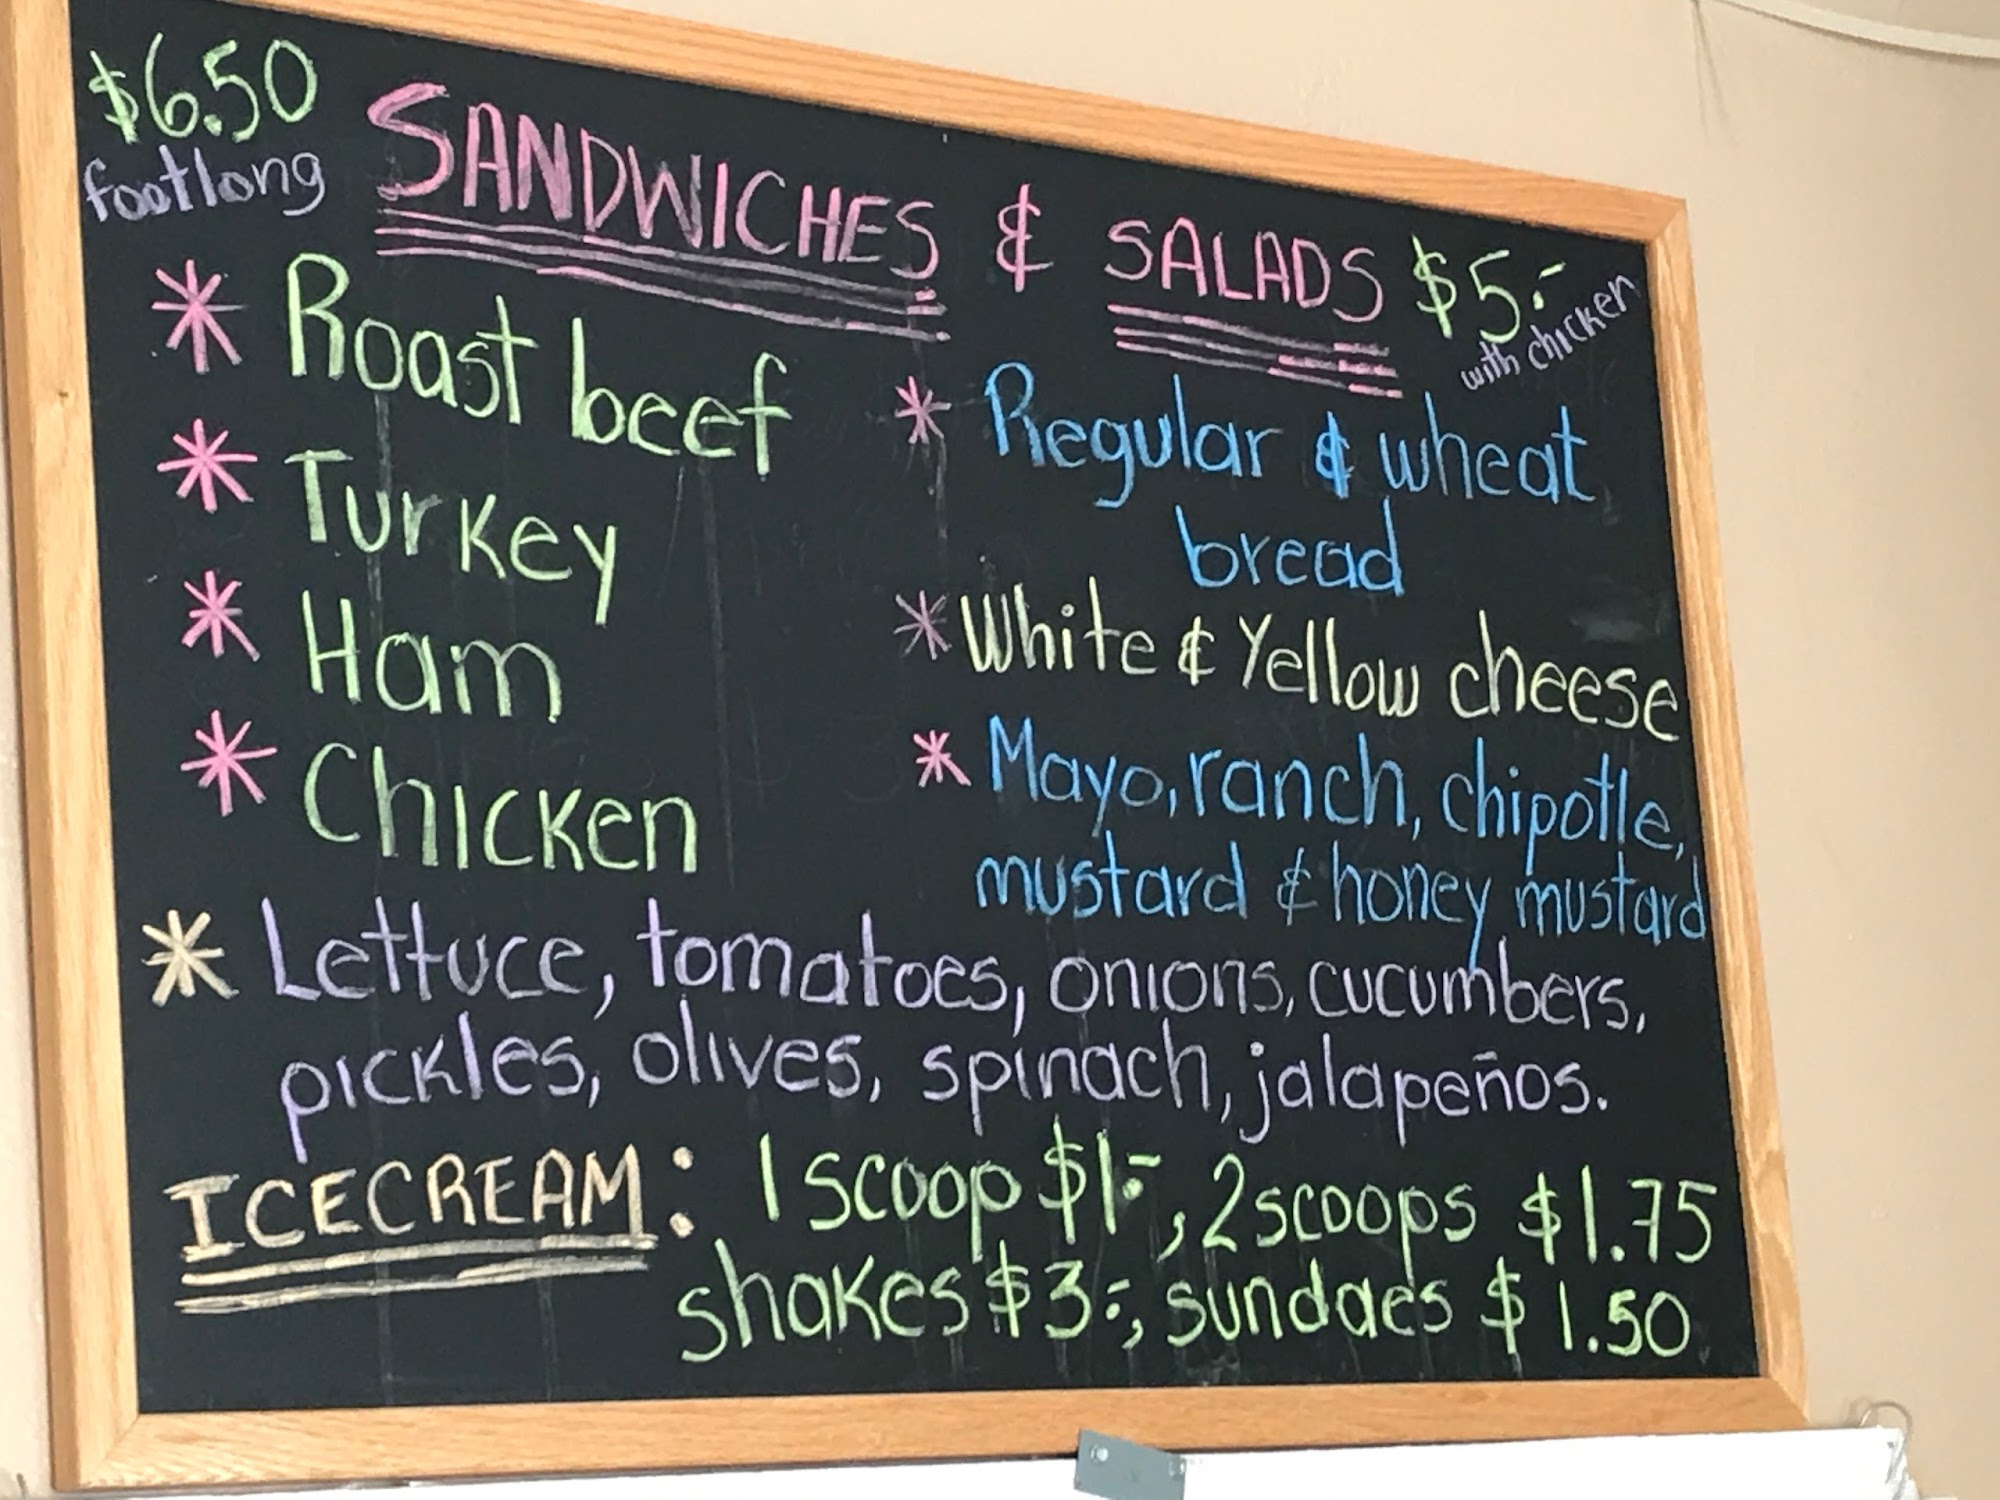 $6.50
footlong
SANDWICHES & SALADS
$5.-
with chicken
* Roast beef
* Turkey
* Ham
* Chicken
* Regular & wheat
bread
* White & Yellow cheese
* Mayo, ranch, chipotle,
mustard & honey mustard
* Lettuce, tomatoes, onions, cucumbers,
pickles, olives, spinach, jalapeños.
ICECREAM: 1 scoop $1.-, 2 scoops $1.75
shakes $3.-, sundaes $1.50